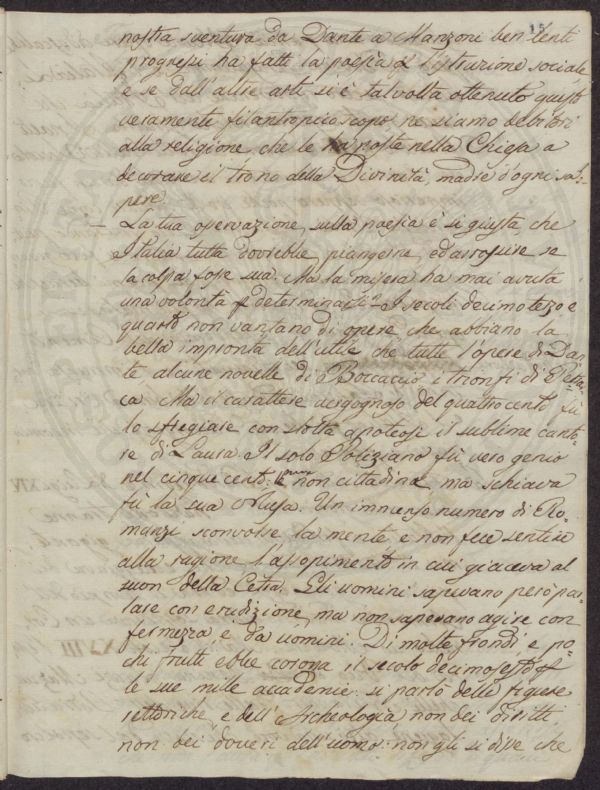 15
nostra sventura da Dante a Manzoni ben lenti
progressi ha fatti la poesia e l'istruzione sociale
e se dall'altre arti si è talvolta ottenuto questo
veramente filantropico scopo ne siamo debitori
alla religione, che le ha poste nella Chiesa a
decorare il trono della Divinità, madre d'ogni sa-
pere.
— La tua osservazione sulla poesia è sì giusta che
Italia tutta dovrebbe piangerne, ed arrossire se
la colpa fosse sua. Ma la misera ha mai avuta
una volontà determinarsi I secoli decimoterzo e
quarto non vantano di opere che abbiano la
bella impronta dell'utile che tutte l'opere di Dan-
te alcune novelle di Boccaccio, i trionfi di Petra
ca Ma il carattere vergognoso del quattrocento fu
lo sfregiare con stolta apoteosi il sublime canto-
re di Laura Il solo Poliziano fu vero genio
nel cinquecento: pure non cittadina, ma schiava
fu la sua Musa. Un immenso numero di Ro-
manzi sconvolse la mente e non fece sentire
alla ragione l'assopimento in cui giaceva al
suon della Cetra. Gli uomini sapevano però par-
lare con erudizione, ma non sapevano agire con
fermezza, e da uomini. Di molte frondi, e po-
chi frutti ebbe corona il secolo decimosesto
le sue mille accademie si parlò delle figure
rettoriche, e dell'Archeologia non dei diritti
non dei doveri dell'uomo: non gli si disse che